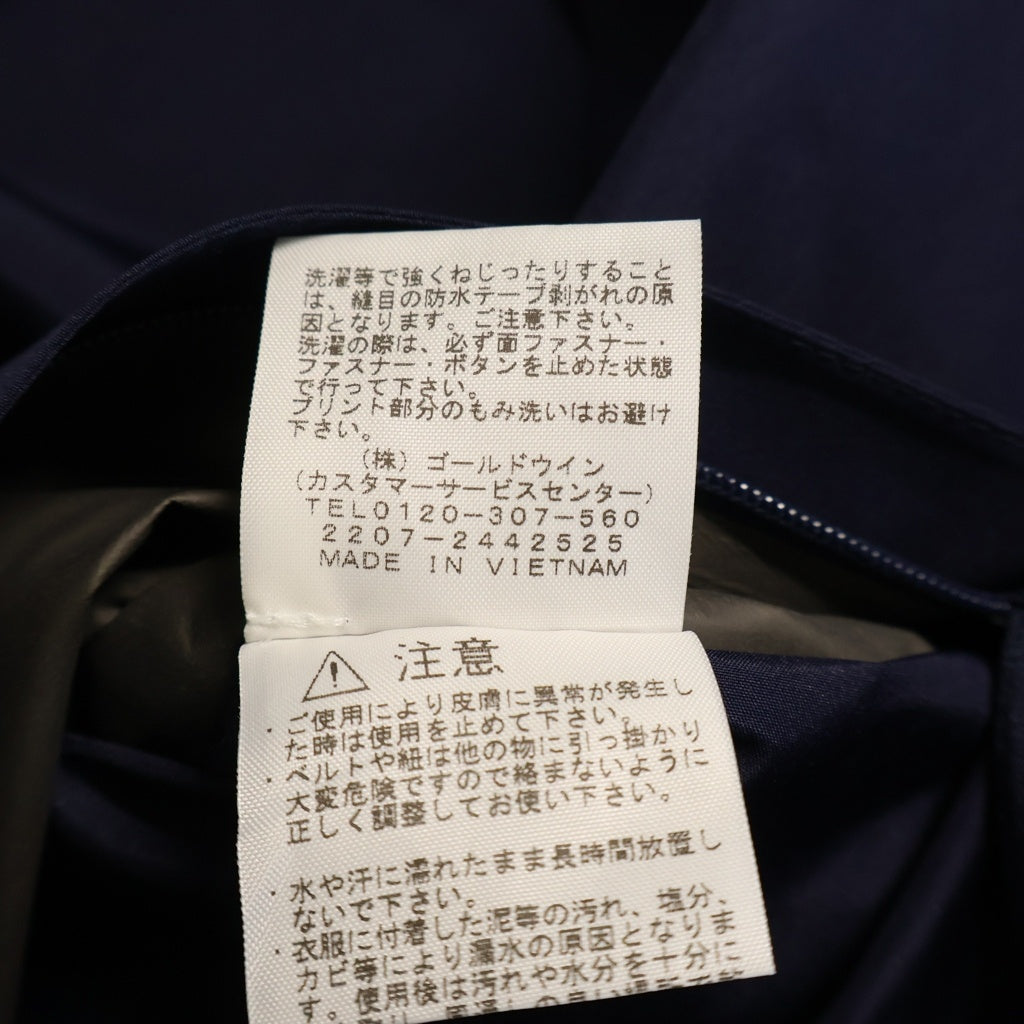 洗濯等で強くねじったりすること
は、縫目の防水テープ剥がれの原
因となります。ご注意下さい。
洗濯の際は、必ず面ファスナー・
ファスナー・ボタンを止めた状態
で行って下さい。
プリント部分のもみ洗いはお避け
下さい。
(株) ゴールドウイン
(カスタマーサービスセンター)
TEL0120-307-560
2207-2442525
MADE IN VIETNAM
注意
・ご使用により皮膚に異常が発生し
た時は使用を止めて下さい。
・ベルトや紐は他の物に引っ掛かり
大変危険ですので絡まないように
正しく調整してお使い下さい。
・水や汗に濡れたまま長時間放置し
ないで下さい。
・衣服に付着した泥等の汚れ、塩分、
カビ等により漏水の原因となりま
す。使用後は汚れや水分を十分に